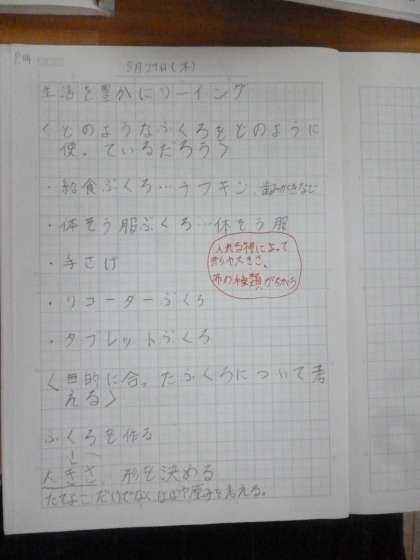 5月29日(木)
生活を豊かにソーイング
くどのようなふくろをどのように
使っているだろう>
・給食ぶくろ…ナフキン 歯みがきなし
・体そう服ぶくろ…体そう服
入れる物によって
形や大きさ、
布の種類がちがう
・手さげ
・リコーダーぶくろ
・タブレットぶくろ
<目的に合ったふくろについて考
える>
ふくろを作る
↓
大きさ、形を決める
たてよこだけでなく、はばや厚さを考える。